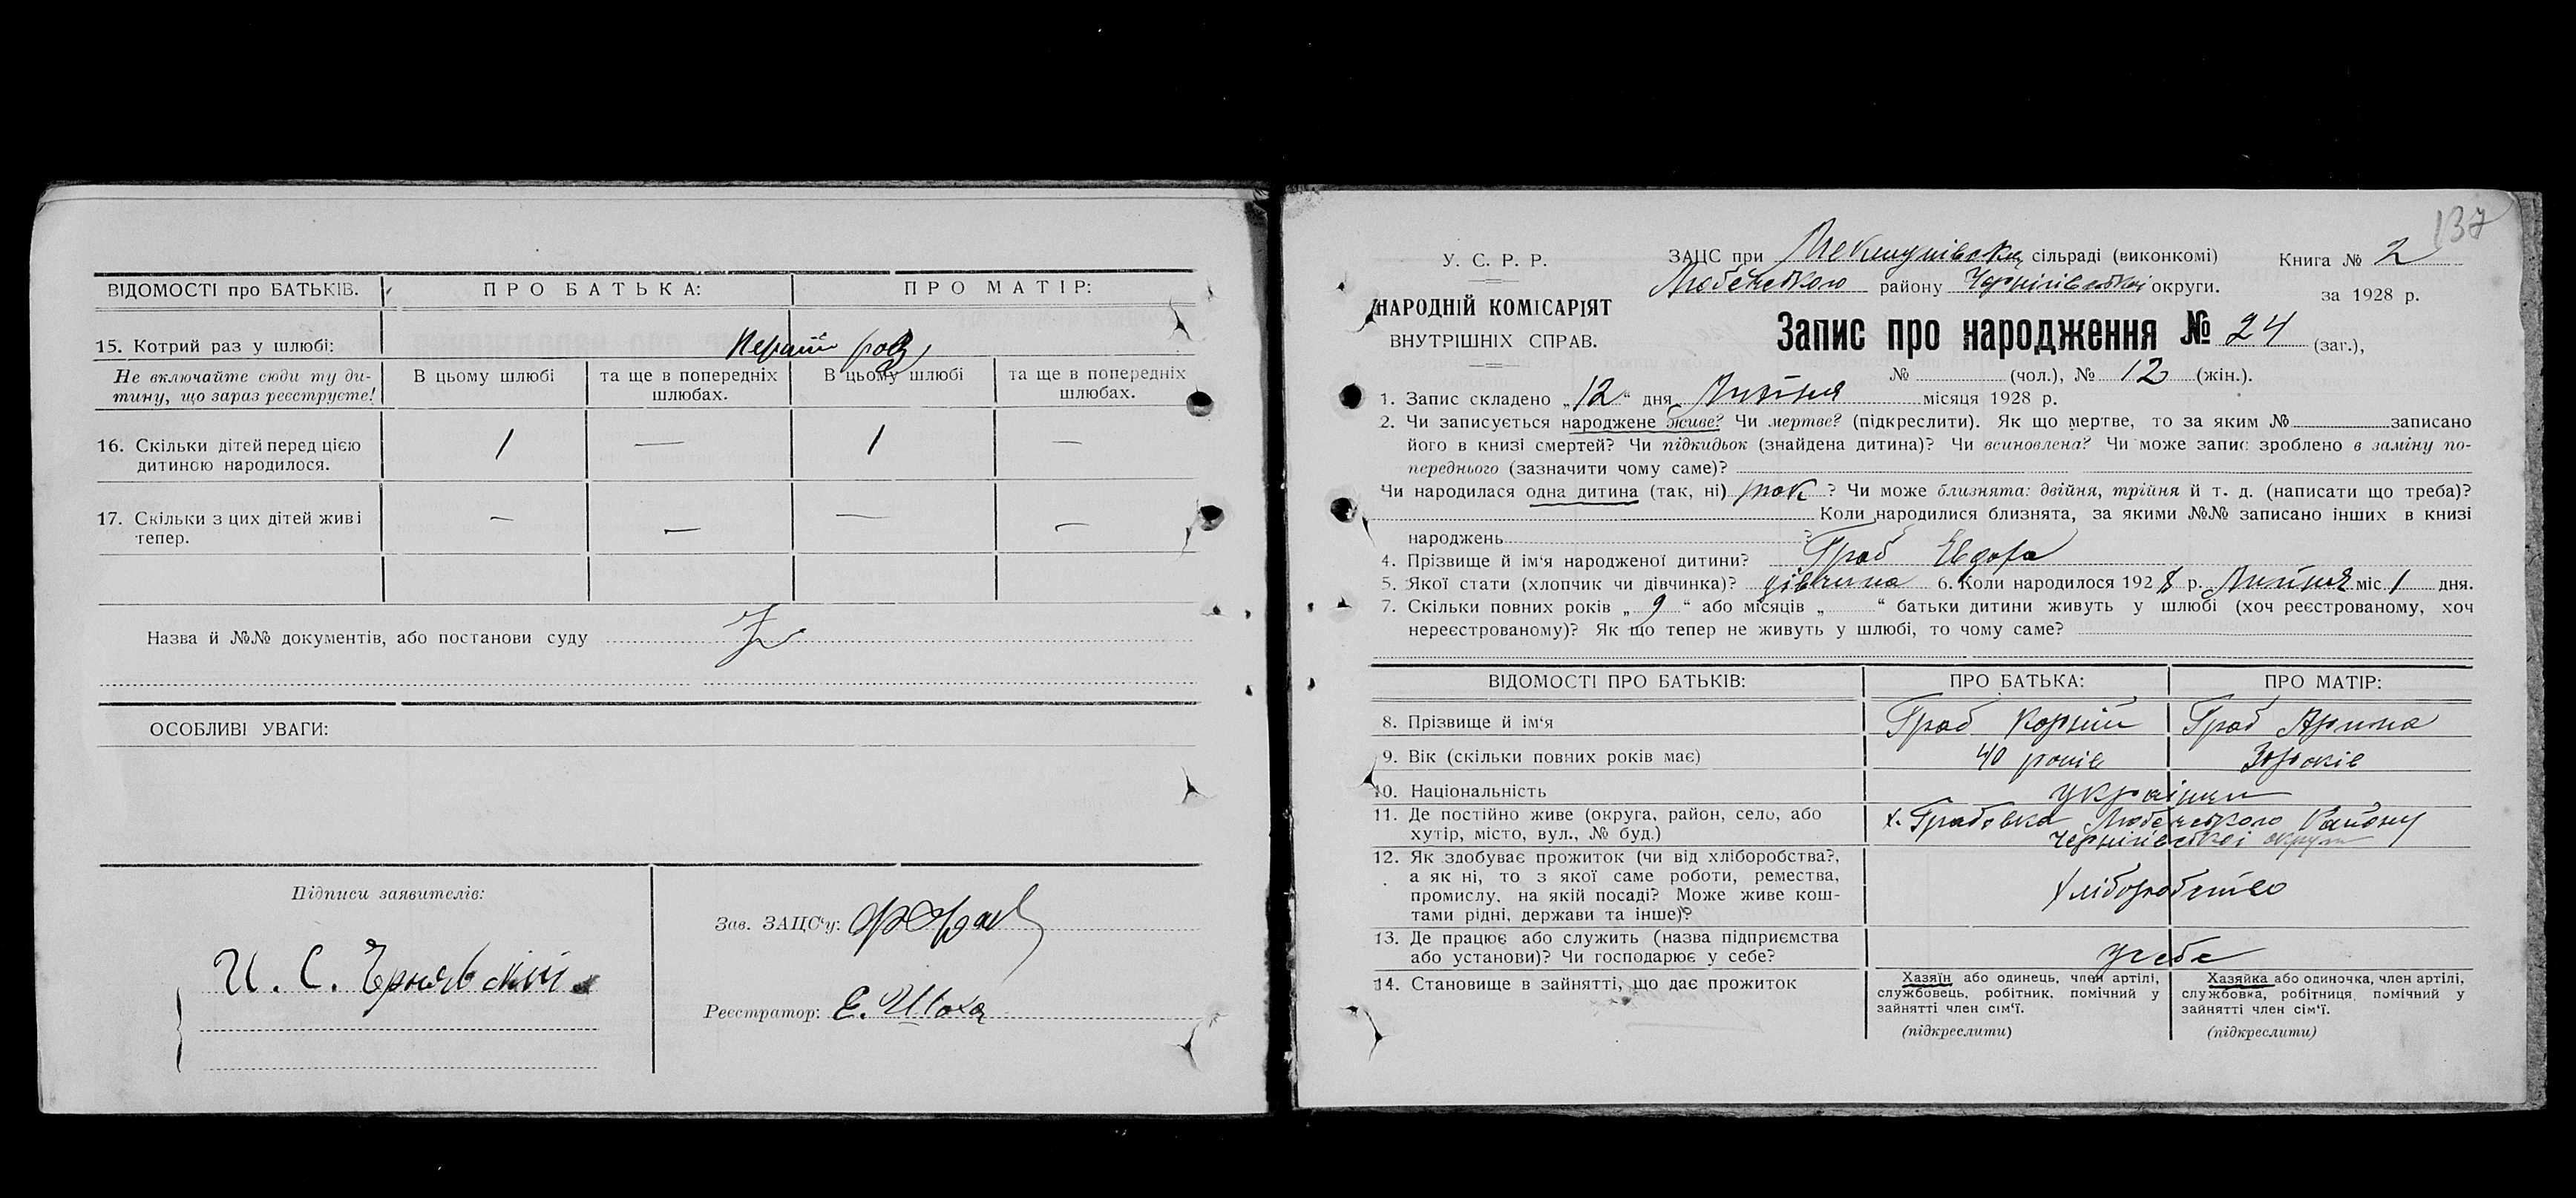 ВІДОМОСТІ про БАТЬКІВ.
ПРО БАТЬКА:
ПРО МАТІР:
15. Котрий раз у шлюбі:
Перший раз
Не включайте сюди ту ди-
тину, що зараз реєструєте!
В цьому шлюбі
та ще в попередніх
шлюбах.
В цьому шлюбі
та ще в попередніх
шлюбах.
16. Скільки дітей перед цією
дитиною народилося.
1 — 1 —
17. Скільки з цих дітей живі
тепер.
— — — —
Назва й №№ документів, або постанови суду
ОСОБЛИВІ УВАГИ:
Підписи заявителів:
И. С. Чернявский
Зав. ЗАЦС'у:
Реєстратор: Е.
137
У. С. Р. Р.
НАРОДНІЙ КОМІСАРІЯТ
ВНУТРІШНІХ СПРАВ.
ЗАЦС при сільраді (виконкомі)
Любецького району Чернігівської округи.
Книга № 2
за 1928 р.
Запис про народження № 24 (заг.),
№ (чол.), № 12 (жін.).
1. Запис складено „12“ дня Липня місяця 1928 р.
2. Чи записується народжене живе? Чи мертве? (підкреслити). Як що мертве, то за яким № записано
його в книзі смертей? Чи підкидьок (знайдена дитина)? Чи всиновлена? Чи може запис зроблено в заміну по-
переднього (зазначити чому саме)?
Чи народилася одна дитина (так, ні) так ? Чи може близнята: двійня, трійня й т. д. (написати що треба)?
Коли народилися близнята, за якими №№ записано інших в книзі
народжень ?
4. Прізвище й ім'я народженої дитини? Граб Евдора
5. Якої стати (хлопчик чи дівчинка)? дівчина 6. Коли народилося 1928 р. Липня міс. 1 дня.
7. Скільки повних років „9“ або місяців „ “ батьки дитини живуть у шлюбі (хоч реєстрованому, хоч
нереєстрованому)? Як що тепер не живуть у шлюбі, то чому саме?
ВІДОМОСТІ ПРО БАТЬКІВ:
ПРО БАТЬКА:
ПРО МАТІР:
8. Прізвище й ім'я
Граб Корній
Граб Арина
9. Вік (скільки повних років має)
40 років
років
10. Національність
українці
11. Де постійно живе (округа, район, село, або
хутір, місто, вул., № буд.)
х. Грабовка Любецького Району
Чернігівської округи
12. Як здобуває прожиток (чи від хліборобства?,
а як ні, то з якої саме роботи, ремества,
промислу, на якій посаді? Може живе кош-
тами рідні, держави та інше)?
Хліборобство
13. Де працює або служить (назва підприємства
або установи)? Чи господарює у себе?
у себе
14. Становище в зайнятті, що дає прожиток
Хазяїн або одинець, член артілі,
службовець, робітник. помічний у
зайнятті член сім'ї.
(підкреслити)
Хазяйка або одиночка, член артілі,
службовка, робітниця, помічний у
зайнятті член сім'ї.
(підкреслити)